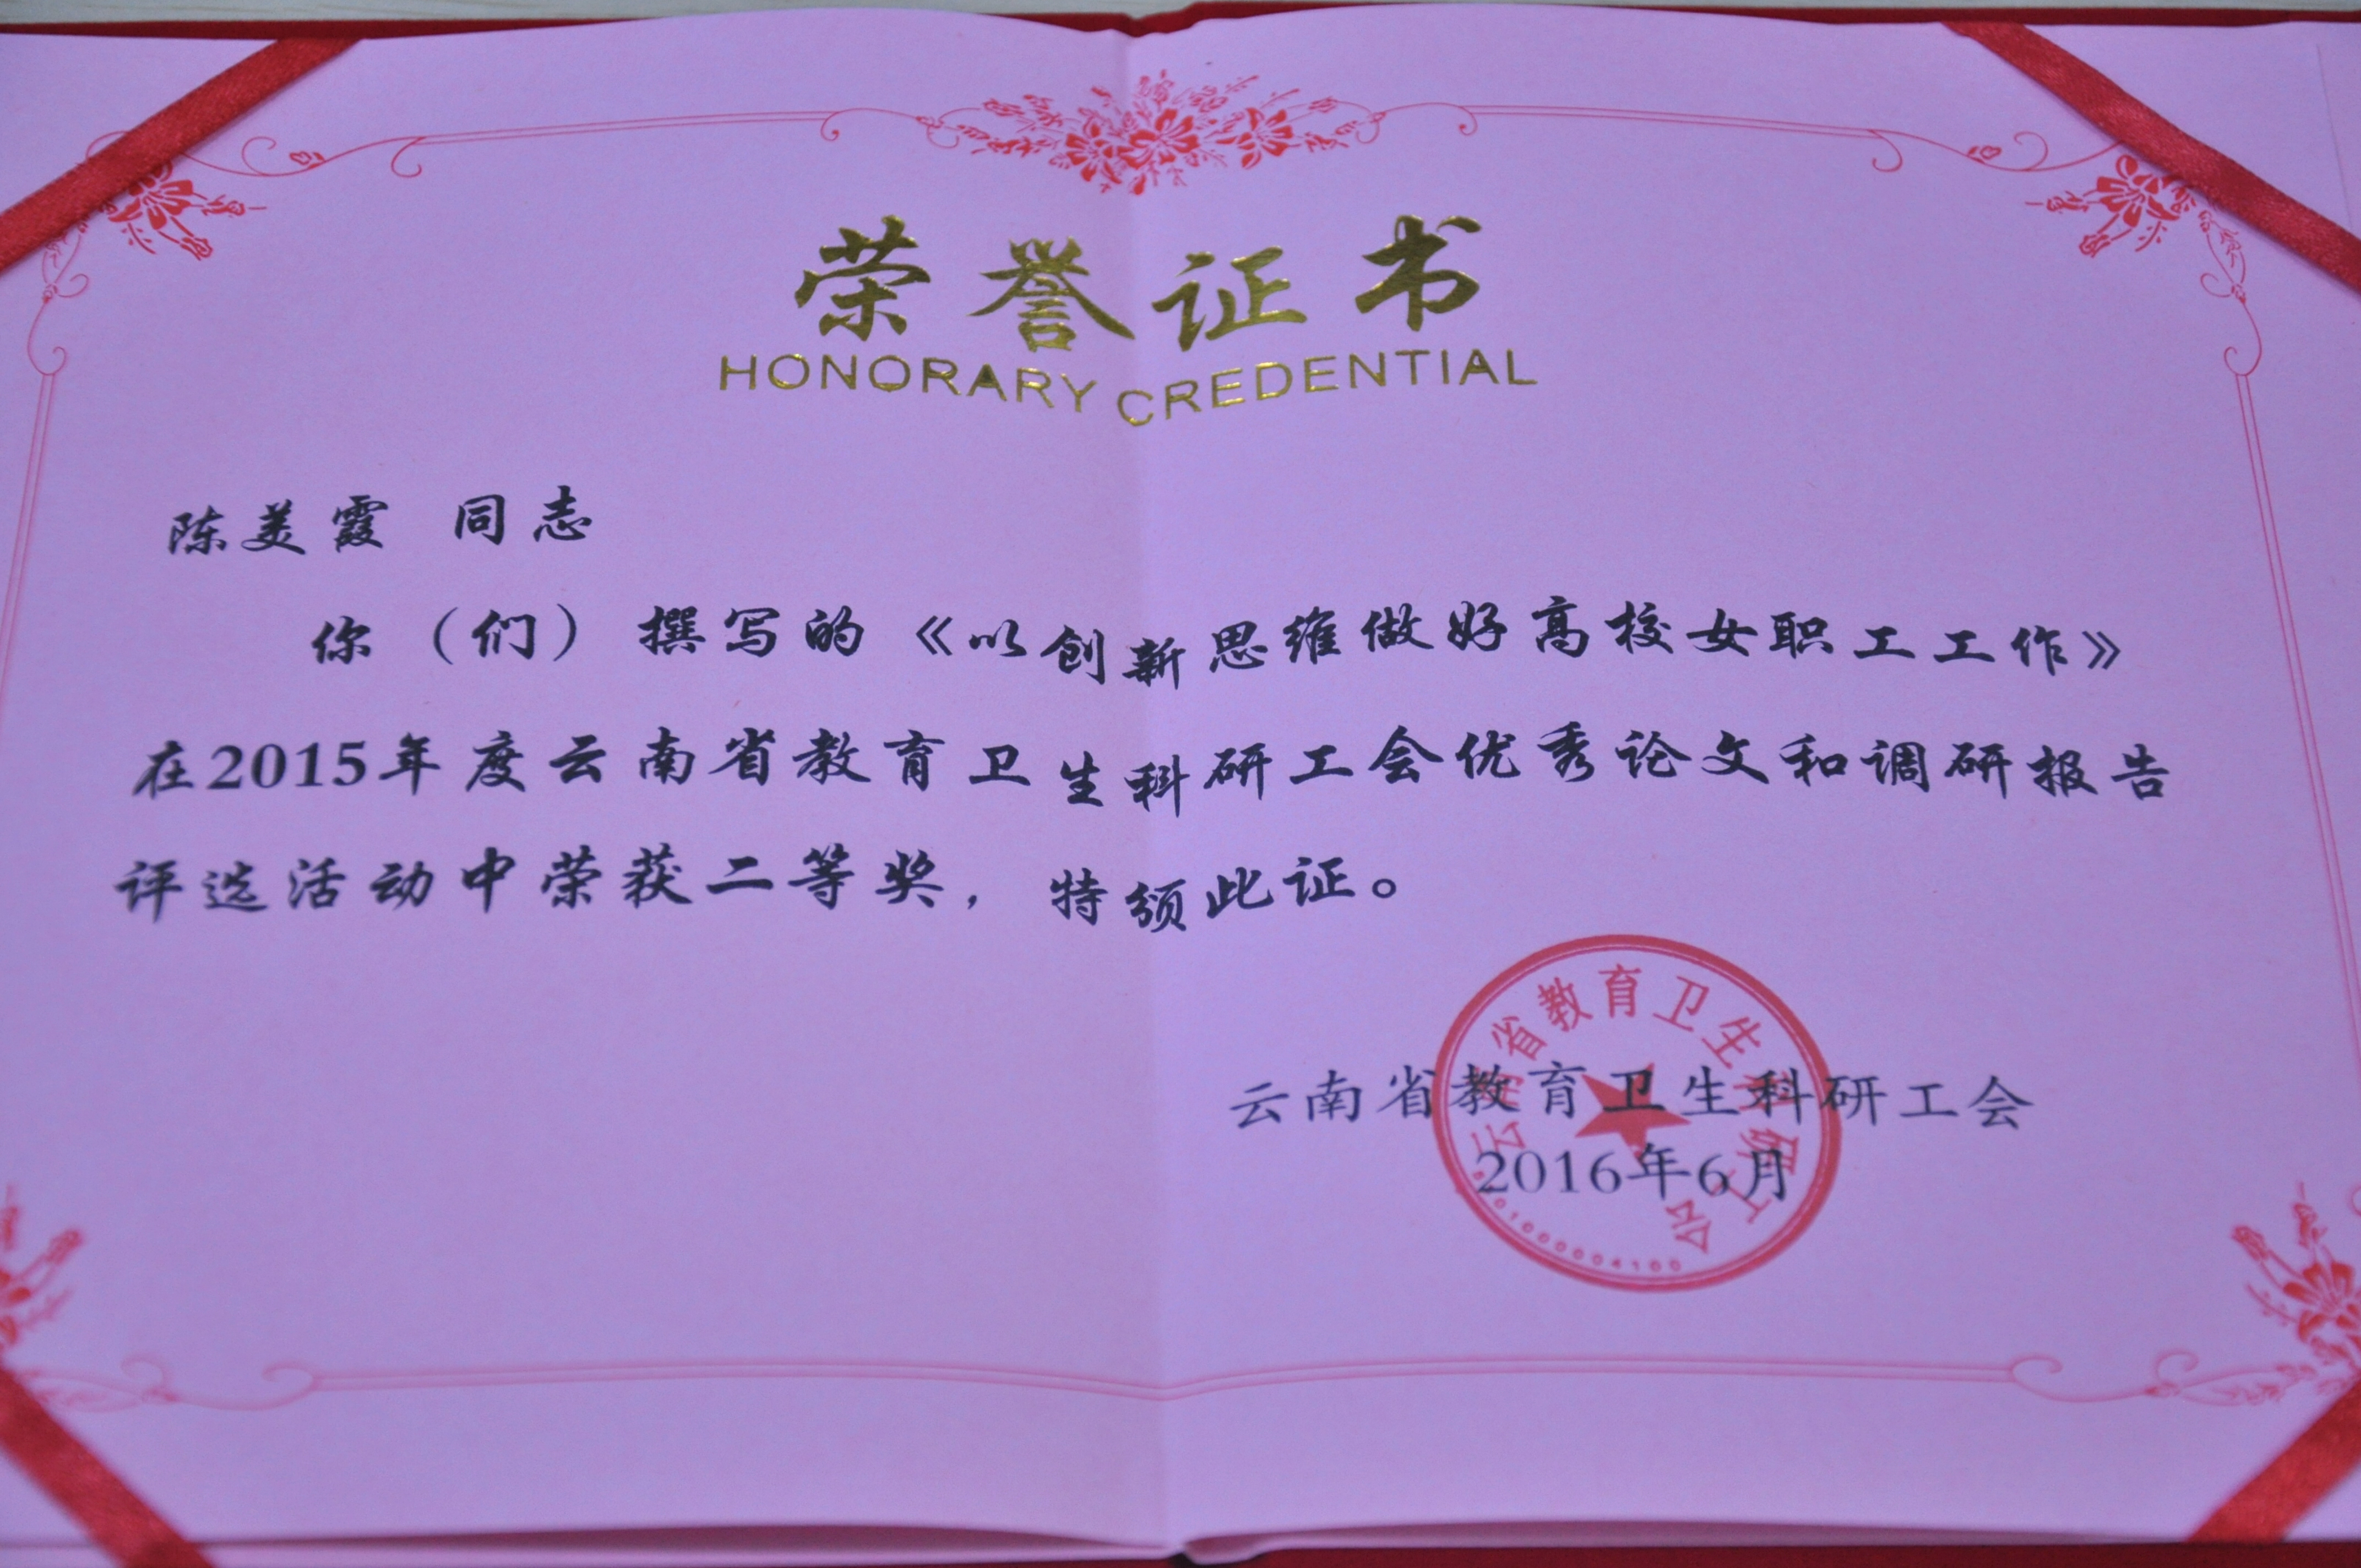 荣誉证书
HONORARY CREDENTIAL
陈美霞 同志
你（们）撰写的《以创新思维做好高校女职工工作》
在2015年度云南省教育卫生科研工会优秀论文和调研报告
评选活动中荣获二等奖，特颁此证。
云南省教育卫生科研工会
云南省教育卫生科研工会
2016年6月